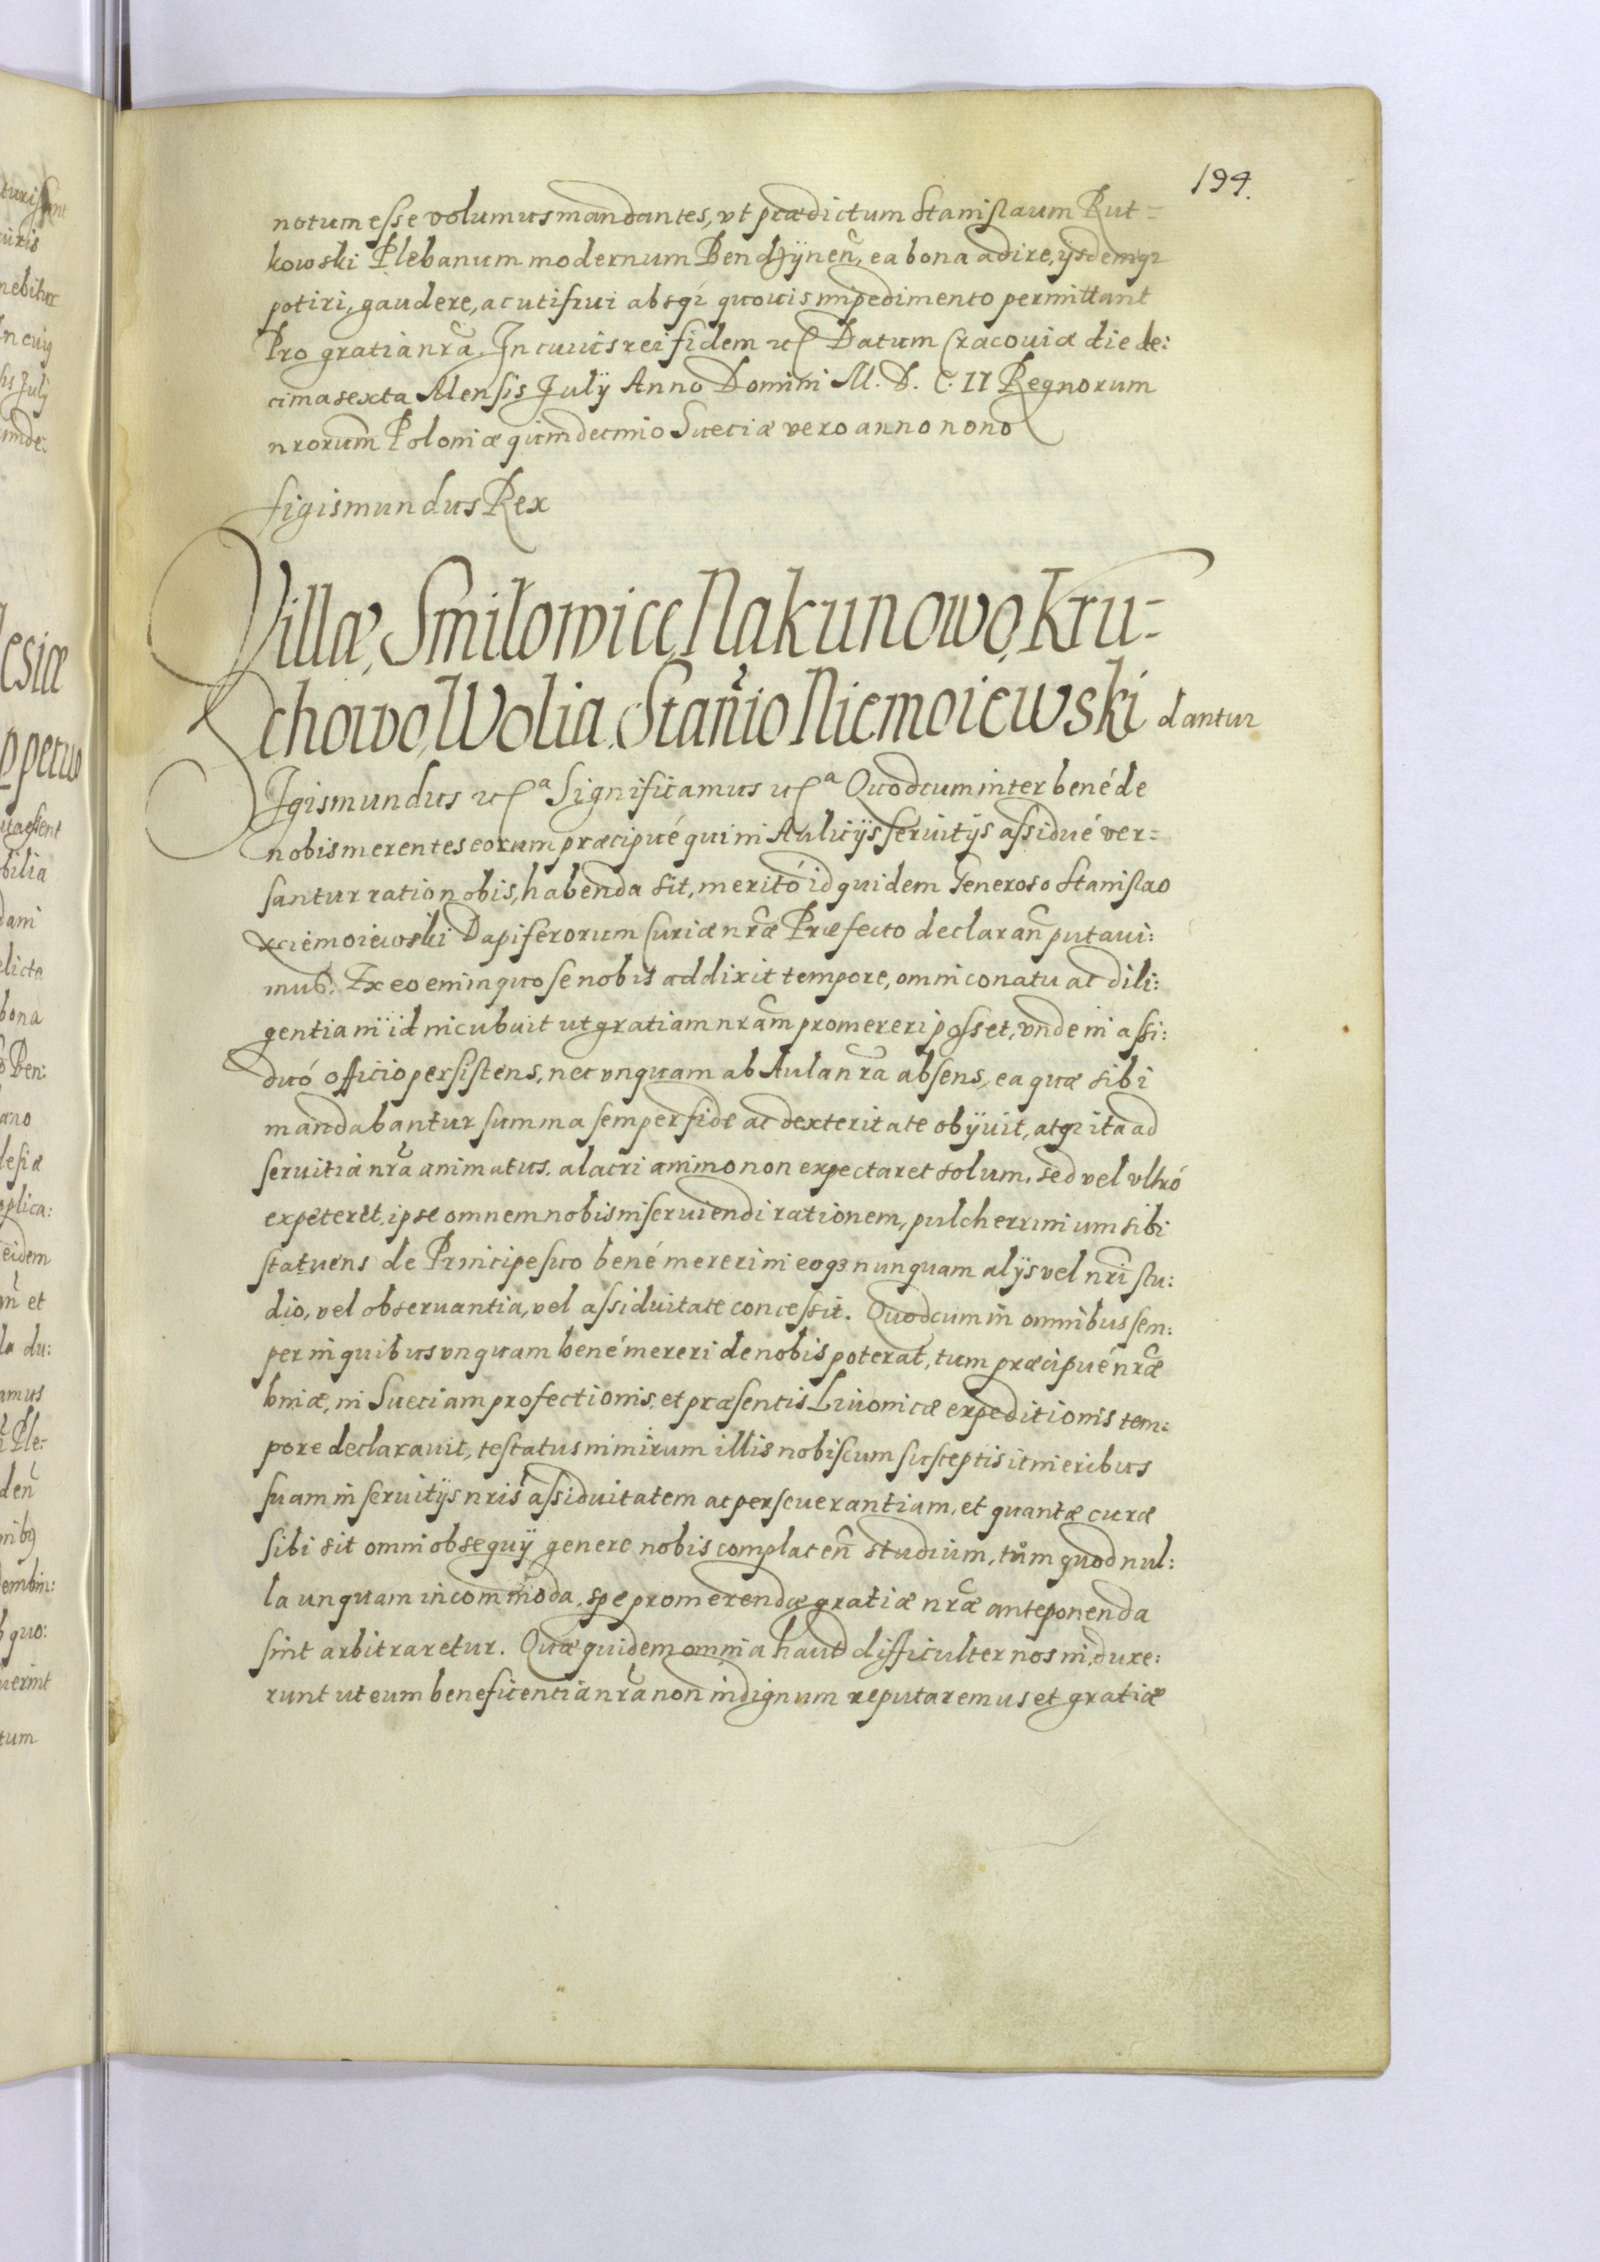 194.
notum esse volumus mandantes, vt prædictum Stanislaum Rut=
kowski Plebanum modernum Bendzÿneñ, ea bona adire, ysdemqꝫ
potiri, gaudere, ac uti frui absqꝫ quouis impedimento permittant
Pro gratia nr̃a. In cuius rei fidem etc Datum Cracouiæ die de:
cima sexta Mensis Julÿ Anno Domini M. D. C. II Regnorum
nrorum̃ Poloniæ quindecimo Sueciæ vero anno nono
Sigismundus Rex
Villæ, Smiłowice, Nakunowo, Kru-
chowo, Wolia, Stañio Niemoiewski dantur
Sigismundus etcª Significamus etcª Quod cum inter bené de
nobis merentes eorum præcipué qui in Aulicÿs seruitÿs assidué ver=
santur ratio nobis, habenda sit, meritó id quidem Generoso Stanislao
Niemoiewski Dapiferorum Curiæ nr̃æ Præfecto declarañ putaui:
mus. Ex eo enim quo se nobis addixit tempore, omni conatu ac dili:
gentia in id incubuit ut gratiam nr̃am promereri posset, vnde in assi:
duó officio persistens, nec vnquam ab Aula nr̃a absens, ea quæ sibi
mandabantur summa semper fide ac dexteritate obÿuit, atqꝫ ita ad
seruitia nr̃a animatus, alacri animo non expectaret solum, sed vel vltró
expeteret, ipse omnem nobis inseruiendi rationem, pulcherrimum sibi
statuens de Principe suo bené mereri in eoqꝫ nunquam alÿs vel nr̃i stu:
dio, vel obseruantia, vel assiduitate concessit. Quod cum in omnibus sem:
per in quibus vnquam bené mereri de nobis poterat, tum præcipué nr̃æ
binæ, in Sueciam profectionis, et præsentis Liuonicæ expeditionis tem:
pore declarauit, testatus nimirum illis nobiscum susceptis itineribus
suam in seruitÿs nris̃ assiduitatem ac perseuerantiam, et quantæ curæ
sibi sit omni obsequÿ genere nobis complaceñ studium, tům quod nul:
la unquam incommoda, spe promerendæ gratiæ nr̃æ anteponenda
sint arbitraretur. Quæ quidem omnia haud difficulter nos in, duxe:
runt ut eum beneficentia nr̃a non indignum reputaremus et gratiæ